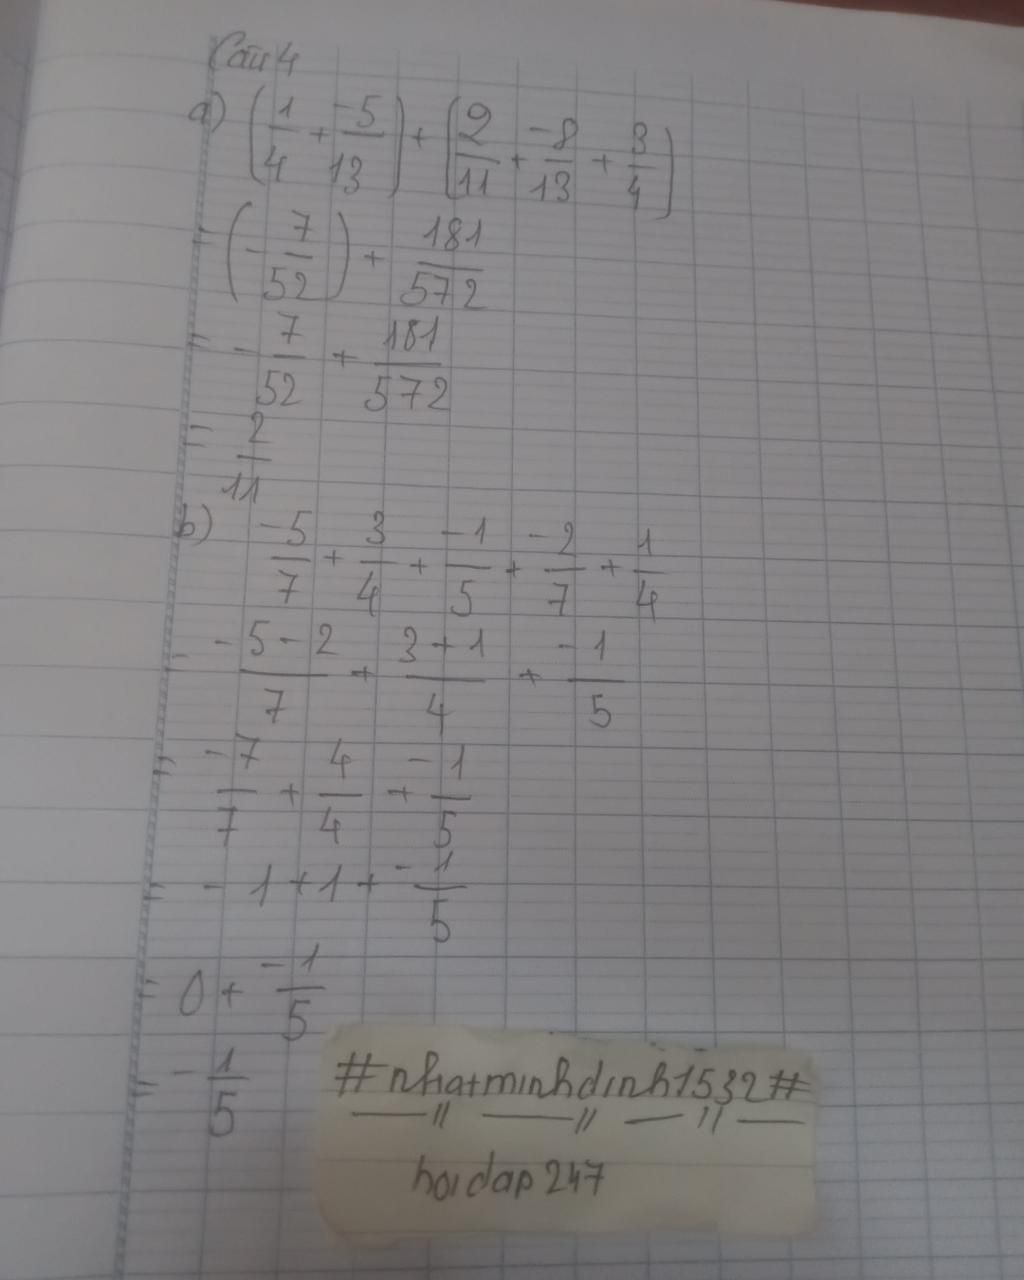 Câu 4
a) (1/4 + -5/13) + (2/11 + -8/13 + 3/4)
= (-7/52) + 181/572
= -7/52 + 181/572
= 2/11
b) -5/7 + 3/4 + -1/5 + -2/7 + 1/4
= -5-2/7 + 3+1/4 + -1/5
= -7/7 + 4/4 + -1/5
= -1+1+ -1/5
= 0 + -1/5
= -1/5
#nhatminhdinh1532#
hoidap247